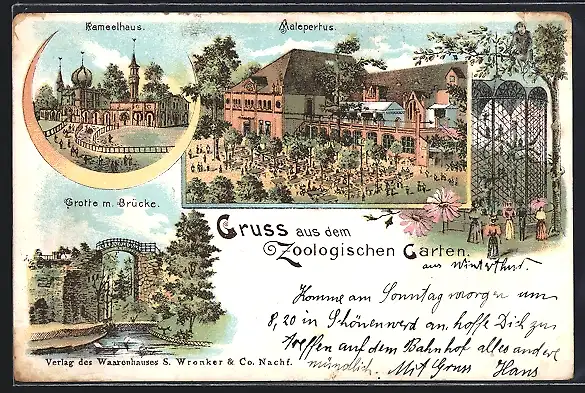 Kameelhaus.
Malepertus.
Grotte m. Brücke.
Gruss aus dem
Zoologischen Garten.
aus Winterthur.
Komme am Sonntag morgen um
8,20 in Schönenwerd an, hoffe Dich zu
treffen auf dem Bahnhof alles andere
mündlich. Mit Gruss Hans
Verlag des Waarenhauses S. Wronker & Co. Nachf.